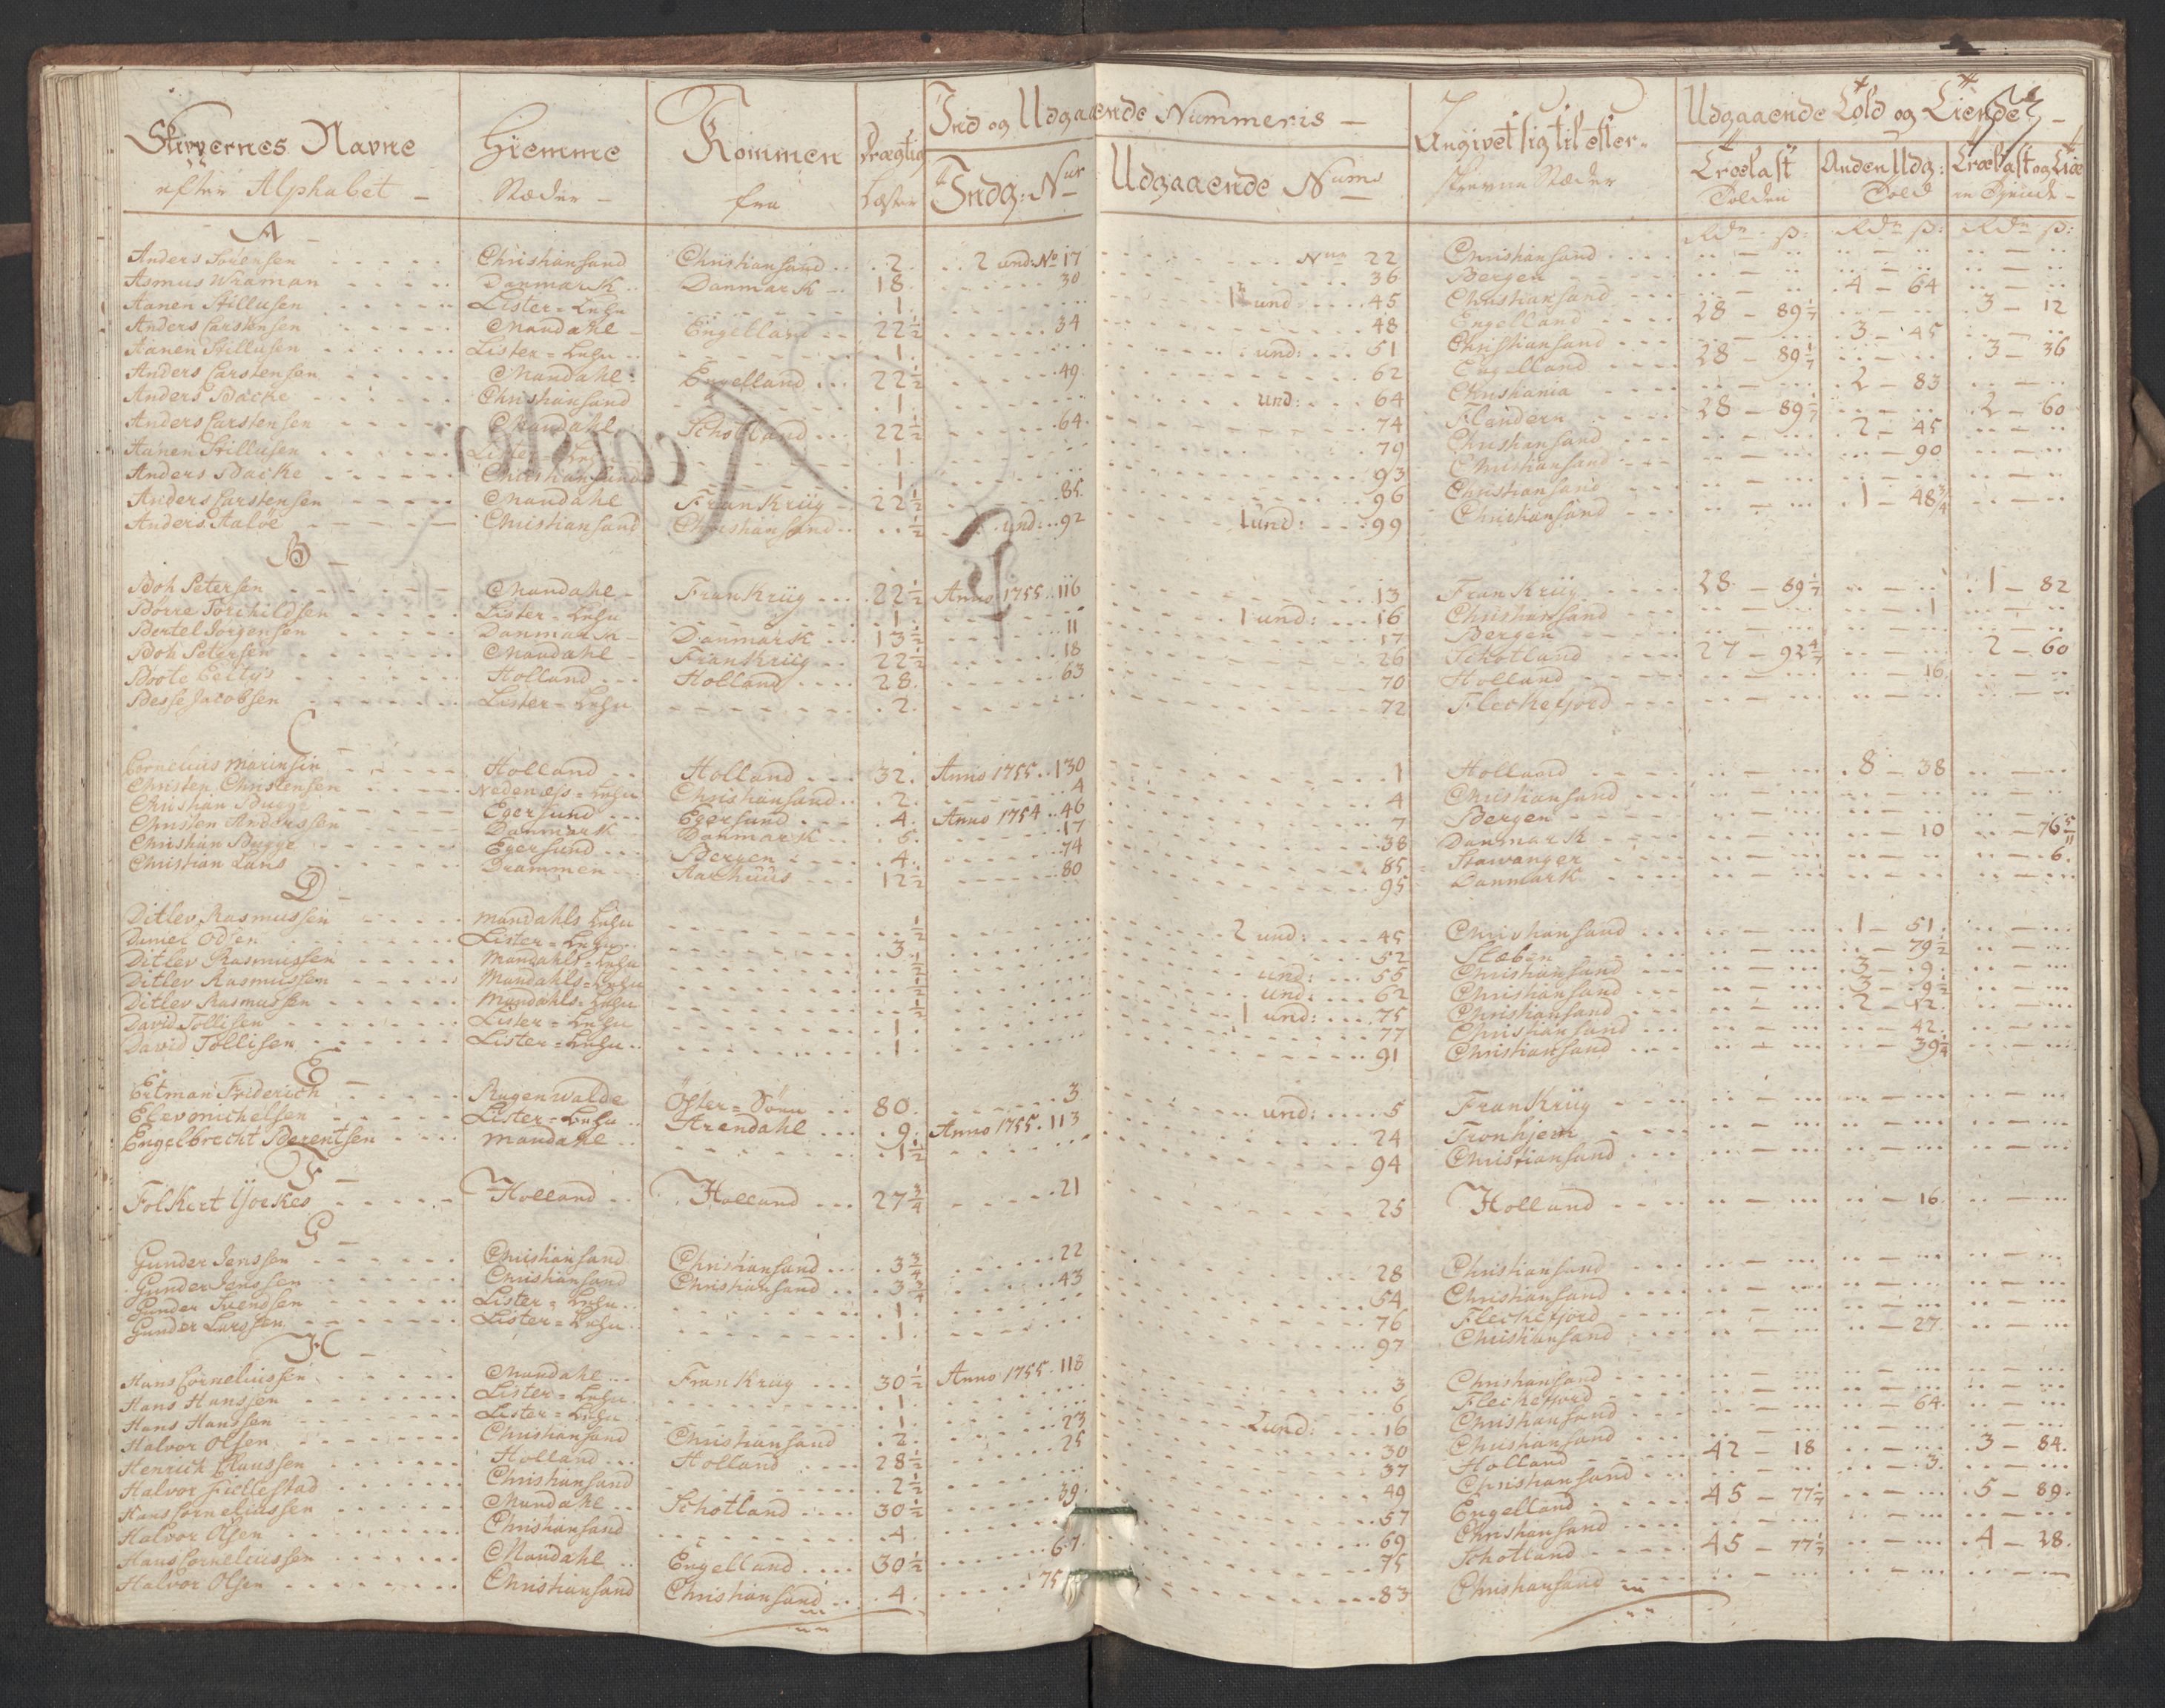 Skippernes Navne efter Alphabet | Hiemme Stæder | Kommen fra | Drægtig Læster | Ind og Udgaaende Nummeris | Angivet sig til efter skrevne Stæder | Udgaaende Told og Tiende
Indg: Nur | Udgaaende Nums | Trælast Tolden | Anden Udg: Told | Trælast og
Rdr ß: | Rdr ß: | Rdr ß:
A
Anders Sørensen | Christiansand | Christiansand | 2 | 2 und: No 17 | Nur 22 | Christiansand
Asmus Wraman | Danmark | Danmark | 18 | 30 | 36 | Bergen | 4 - 64
Aanen Stillufsen | Lister = Lehn | 1 | und 45 | Christiansand
Anders Carstensen | Mandahl | Engelland | 22 1/2 | 34 | 48 | Engelland | 28 - 89 1/7 | 3 - 12
Aanen Stillufsen | Lister = Lehn | 1 | und: 51 | Christiansand | 3 - 45
Anders Carstensen | Mandahl | Engelland | 22 1/2 | 49 | 62 | Engelland | 28 - 89 1/7 | 3 - 36
Anders Backe | Christiansand | 1 | und: 64 | Christiania | 2 - 83
Anders Carstensen | Mandahl | Schotland | 22 1/2 | 64 | 74 | Flandern | 28 - 89 1/7 | 2 - 60
Aanen Stillufsen | Lister = Lehn | 1 | 79 | Christiansand | 2 - 45
Anders Backe | Christiansand | 1 | 93 | Christiansand | 90
Anders Carstensen | Mandahl | Frankriig | 22 1/2 | 85 | 96 | Christiansand
Anders Aaløe | Christiansand | Christiansand | 1/2 | und: 92 | 1 und: 99 | Christiansand | 1 - 48 3/4
B
Boh Petersen | Mandahl | Frankriig | 22 1/2 | Anno 1755 116 | 13 | Frankriig | 28 - 89 1/7 | 1 - 82
Børre Torchildsen | Lister = Lehn | 1 | 1 und: 16 | Christiansand | 1
Bertel Jørgensen | Danmark | Danmark | 13 1/2 | 11 | 17 | Bergen
Boh Petersen | Mandahl | Frankriig | 22 1/2 | 18 | 26 | Schotland | 27 - 92 4/7 | 2 - 60
Boote Eeltys | Holland | Holland | 28 | 63 | 70 | Holland | 16
Besse Jacobsen | Lister = Lehn | 2 | 72 | Fleckefjord
C
Cornelius Marinsin | Holland | Holland | 32 | Anno 1755 130 | 1 | Holland | 8 - 38
Christen Christensen | Nedenæss = Lehn | Christiansand | 2 | 4 | 4 | Christiansand
Christian Bugge | Egersund | Egersund | 4 | Anno 1754 46 | 7 | Bergen
Christen Anderssen | Danmark | Danmark | 5 | 17 | 38 | Danmark | 10 | 76 5/11
Christian Bugge | Egersund | Bergen | 4 | 74 | 85 | Stavanger | 6
Christian Lans | Drammen | Aarhuus | 12 1/2 | 80 | 95 | Danmark
D
Ditlev Rasmussen | Mandahls Lehn | 1/2 | 2 und: 45 | Christiansand | 1 - 51
Daniel Odsen | Lister = Lehn | 3 | 52 | 79 1/2
Ditlev Rasmussen | Mandahls = Lehn | 1/2 | und: 55 | Christiansand | 3 - 9
Ditlev Rasmussen | Mandahls = Lehn | 1/2 | und: 62 | Christiansand | 3 - 9 1/2
Ditlev Rasmussen | Mandahls = Lehn | 1/2 | 1 und: 75 | Christiansand | 2 - 12
David Tollisen | Lister = Lehn | 1 | 77 | Christiansand | 42
David Tollisen | Lister = Lehn | 1 | 91 | Christiansand | 39 1/4
E
Ertman Friderich | Rugenwalde | Öster = Søen | 80 | 3 | und: 5 | Frankriig
Elev Michelsen | Lister = Lehn | Arendahl | 9 | Anno 1755 113 | 24 | Tronhjem
Engelbrecht Berentsen | Mandahl | 1 1/2 | 94 | Christiansand
F
Folkert Yoekes | Holland | Holland | 27 3/4 | 21 | 25 | Holland | 16
G
Gunder Jenssen | Christiansand | Christiansand | 3 3/4 | 22 | 28 | Christiansand
Gunder Jenssen | Christiansand | Christiansand | 3 3/4 | 43 | 54 | Christiansand
Gunder Svendsen | Lister = Lehn | 1 | 76 | Fleckefjord
Gunder Larssen | Lister = Lehn | 1 | 97 | Christiansand | 27
H
Hans Corneliussen | Mandahl | Frankriig | 30 1/2 | Anno 1755 118 | 3 | Christiansand
Hans Hanssen | Lister = Lehn | 1 | 6 | Fleckefjord
Hans Hanssen | Lister = Lehn | 1 | und: 16 | Christiansand | 64
Halvor Olsen | Christiansand | Christiansand | 2 | 23 | 30 | Christiansand
Henrich Claussen | Holland | Holland | 28 1/2 | 25 | 37 | Holland | 42 - 18 | 3 - 84
Halvor Fiellestad | Christiansand | 2 1/2 | 49 | Christiansand | 3
Hans Corneliussen | Mandahl | Schotland | 30 1/2 | 39 | 57 | Engelland | 45 - 77 1/7 | 5 - 89
Halvor Olsen | Christiansand | 4 | 69 | Christiansand
Hans Corneliussen | Mandahl | Engelland | 30 1/2 | 67 | 75 | Schotland | 45 - 77 1/7 | 4 - 28
Halvor Olsen | Christiansand | Christiansand | 4 | 75 | 83 | Christiansand